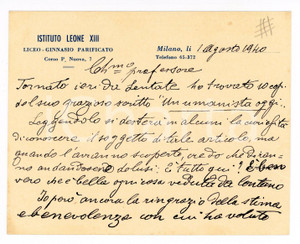 ISTITUTO LEONE XIII
LICEO-GINNASIO PARIFICATO
Corso P. Nuova, 7
Milano, li 1 agosto 1940
Telefono 65-872
Ch.mo professore
Tornato ieri da Lentate ho trovato 10 cop.
del suo grazioso scritto "Un umanista oggi".
Leggendolo si desterà in alcuni la curiosità
di conoscere il soggetto di tale articolo, ma
quando l'avranno scoperto, credo che diran-
no andandosene delusi: è tutto qui? È ben
vero che è bella ogni cosa veduta da lontano
Io però ancora la ringrazio della stima
e benevolenza con cui ha voluto